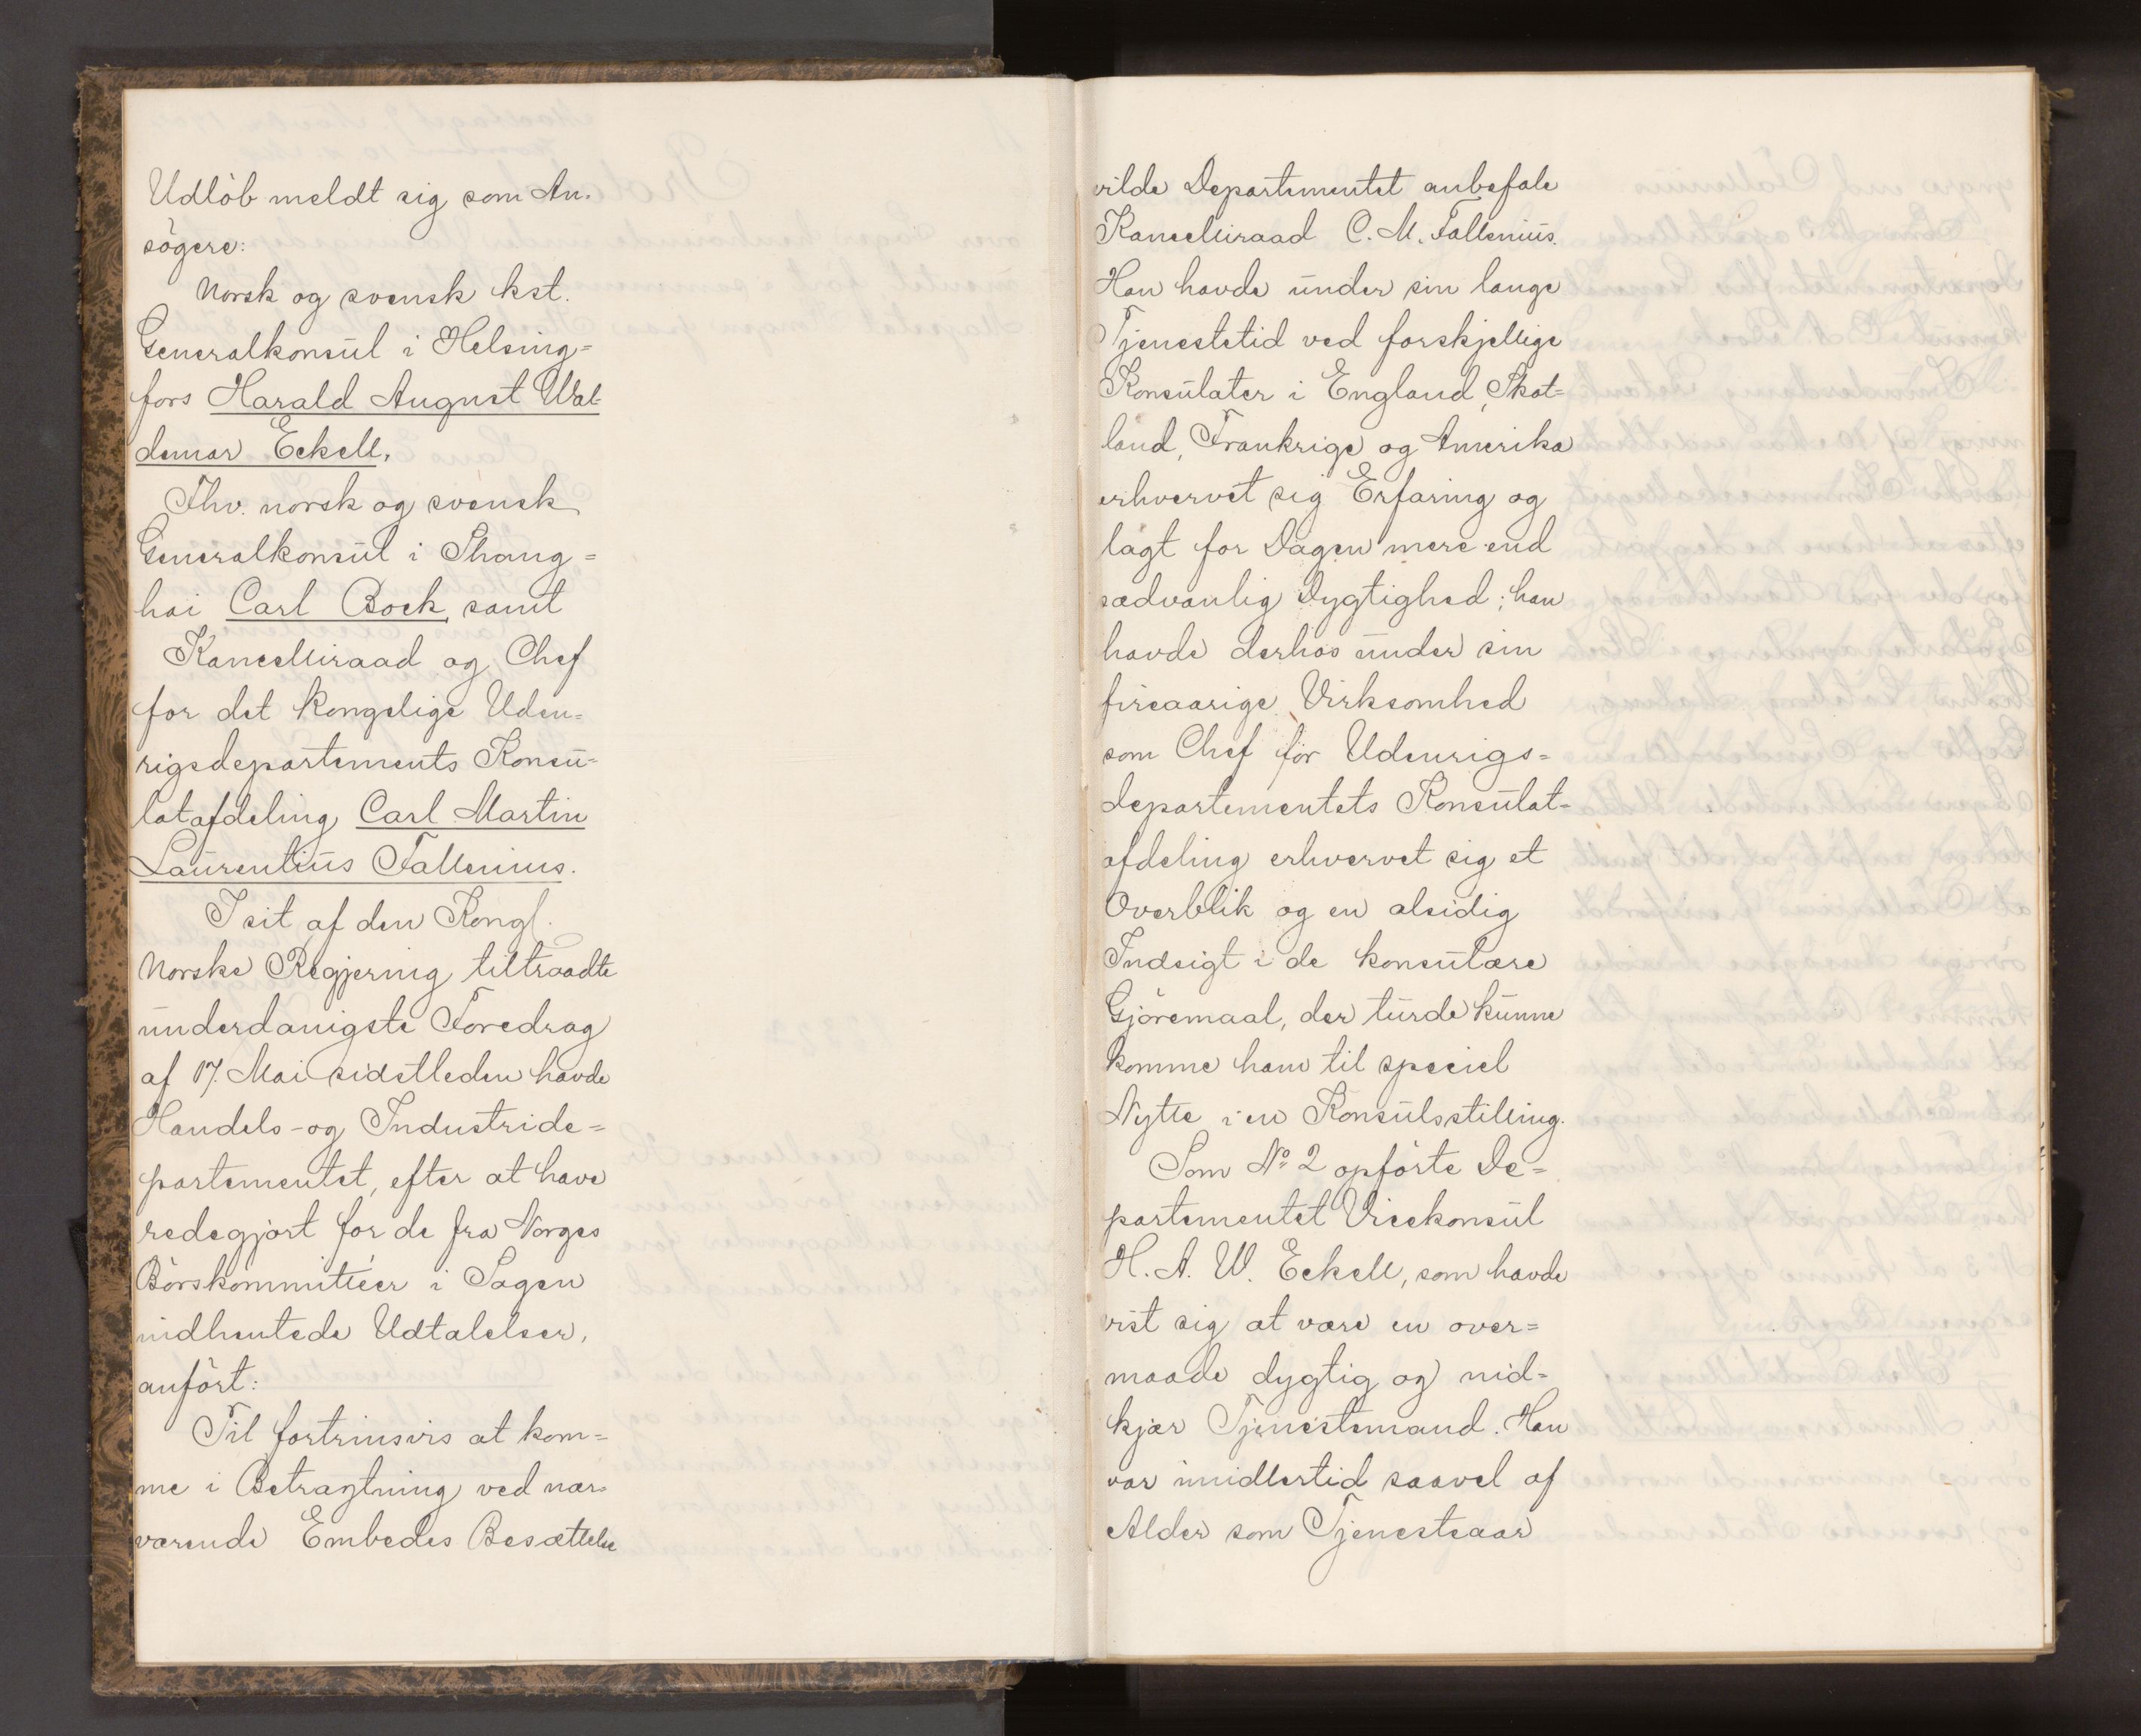 Udlöb meldt sig som An-
sögere:
Norsk og svensk kst.
Generalkonsul i Helsing=
fors Harald August Wal-
demar Eckell,
Fhv. norsk og svensk
Generalkonsul i Shang=
hai Carl Bock, samt
Kancelliraad og Chef
for det Kongelige Uden=
rigsdepartements Konsu-
latafdeling Carl Martin
Laurentius Fallenius.
I sit af den Kongl.
Norske Regjering tiltraadte
underdanigste Foredrag
af 17. Mai sidstleden havde
Handels- og Industride=
partementet, efter at have
redegjort for de fra Norges
Börskommitteer i Sagen
indhentede Udtalelser,
anfört:
Til fortrinsvis at kom=
me i Betragtning ved nær-
værende Embedes Besættelse
vilde Departementet anbefale
Kancelliraad C. M. Fallenius.
Han havde under sin lange
Tjenestetid ved forskjellige
Konsulater i England, Skot=
land, Frankrige og Amerika
erhvervet sig Erfaring og
lagt for Dagen mere end
sædvanlig Dygtighed; han
havde derhos under sin
fireaarige Virksomhed
som Chef for Udenrigs=
departementets Konsulat-
afdeling erhvervet sig et
Overblik og en alsidig
Indsigt i de konsulære
Gjöremaal, der turde kunne
komme ham til speciel
Nytte i en Konsulsstilling.
Som No 2 opförte De=
partementet Vicekonsul
H. A. W. Eckell, som havde
vist sig at være en over=
maade dygtig og nid=
kjær Tjenestemand. Han
var imidlertid saavel af
Alder som Tjenesteaar